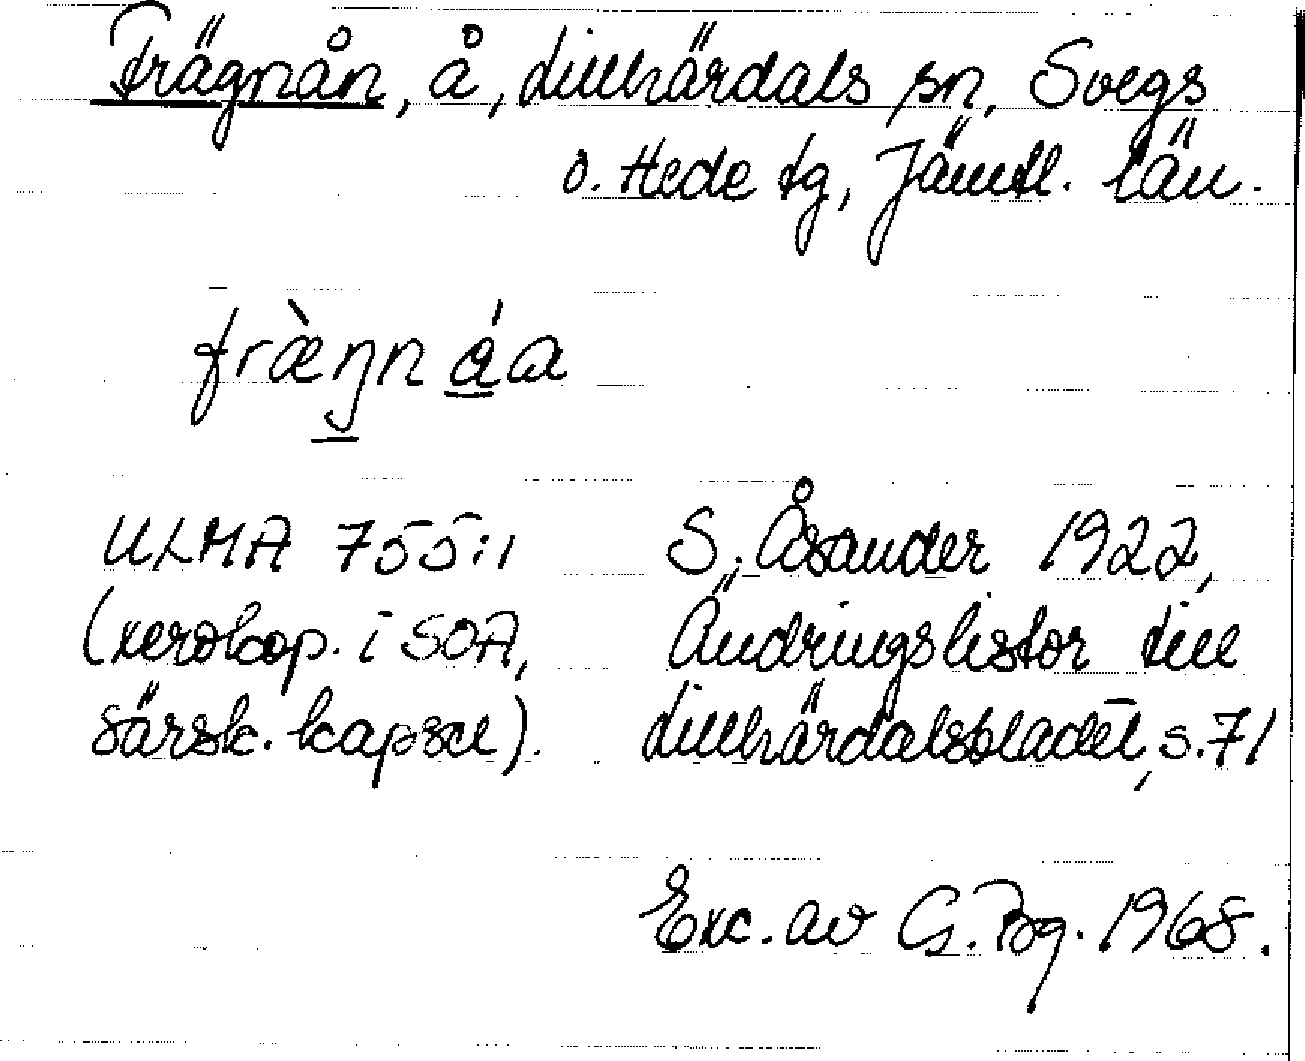 Frägnån, å, Lillhärdals sn, Svegs
o. Hede tg, Jämtl. län.
fræ̀ŋn áa
ULMA 755:1
(xerokop. i SOA,
särsk. kapsel).
S. Åsander 1922,
Ändringslistor till
Lillhärdalsbladet, s. 71
Exc. av G. Bg. 1968.